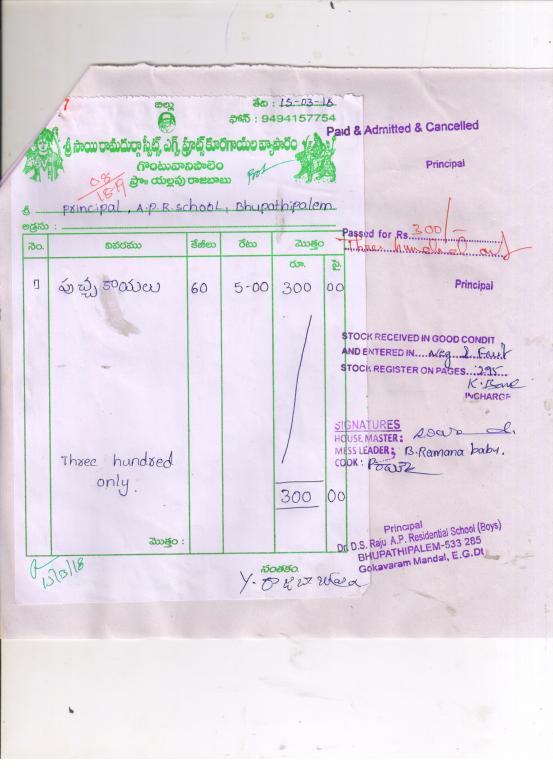 బిల్లు
తేది : 15-03-18
ఫోన్ : 9494157754
శ్రీ సాయి రామదుర్గా స్వీట్స్ ఎగ్స్ ఫ్రూట్స్ కూరగాయల వ్యాపారం
గొంటువానిపాలెం
ప్రొ॥ యల్లపు రాజబాబు
శ్రీ Principal, A.P.R.School, Bhupathipalem
అడ్రసు :
నెం. వివరము కేజీలు రేటు మొత్తం
రూ. పై
1 పుచ్చకాయలు 60 5-00 300 00
Three hundred
only.
300 00
మొత్తం :
సంతకం
Y. రాజబాబు
15/3/18
Paid & Admitted & Cancelled
Principal
Passed for Rs. 300/-
Three hundred only
Principal
STOCK RECEIVED IN GOOD CONDIT
AND ENTERED IN.... Veg & Fruit
STOCK REGISTER ON PAGES... 295
INCHARGE
SIGNATURES
HOUSE MASTER:
MESS LEADER; B. Ramana baby.
COOK:
Principal
Dr. D.S. Raju A.P. Residential School (Boys)
BHUPATHIPALEM-533 285
Gokavaram Mandal, E.G.Dt